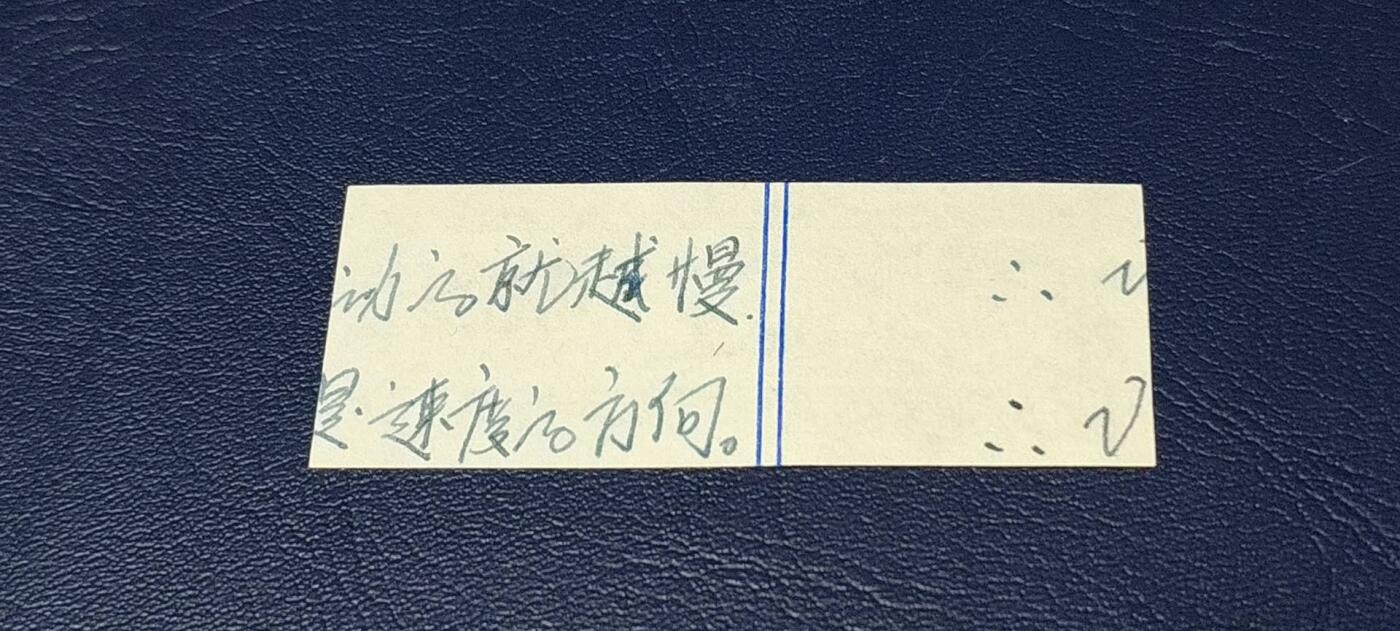 动的就越慢. ∴ v
是速度的方向。 ∴ v